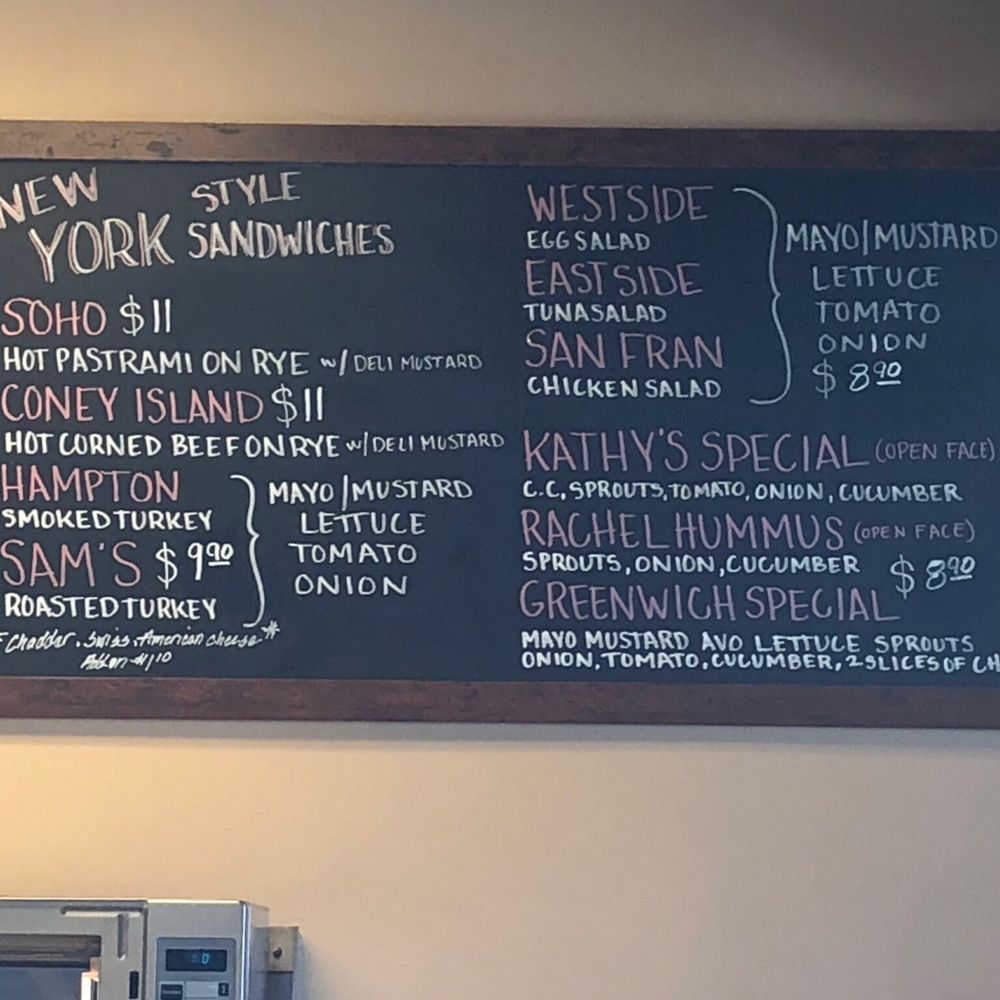 NEW YORK STYLE SANDWICHES
SOHO $11
HOT PASTRAMI ON RYE w/ DELI MUSTARD
CONEY ISLAND $11
HOT CORNED BEEF ON RYE w/ DELI MUSTARD
HAMPTON
SMOKED TURKEY
SAM'S $9.90
ROASTED TURKEY
MAYO/MUSTARD
LETTUCE
TOMATO
ONION
Cheddar, Swiss, American cheese*
Add on $1.10
WESTSIDE
EGG SALAD
EASTSIDE
TUNA SALAD
SAN FRAN
CHICKEN SALAD
MAYO/MUSTARD
LETTUCE
TOMATO
ONION
$8.90
KATHY'S SPECIAL (OPEN FACE)
C.C, SPROUTS, TOMATO, ONION, CUCUMBER
RACHEL HUMMUS (OPEN FACE)
SPROUTS, ONION, CUCUMBER $8.90
GREENWICH SPECIAL
MAYO MUSTARD AVO LETTUCE SPROUTS
ONION, TOMATO, CUCUMBER, 2 SLICES OF CH